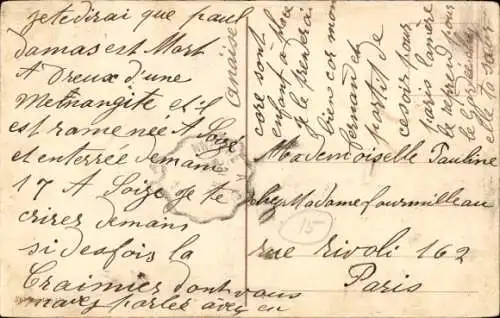 jetedirai que paul
damas est Mort
A Dreux d'une
Meknangite et il
est ramenée A Soizé
et enterrée demain
17 A Soize je te
crirez demans
si deafois la
Craimier dont vous
mavez parlez avez eu
Anaïse
core sont
enfant a place
je le prendrai
bien cor mon
fernand et
partit de
cesoir pour
paris lamère
le reprend pour
le
elle la
Mademoiselle Pauline
chez Madame fourmilleau
rue rivoli 162
Paris
15